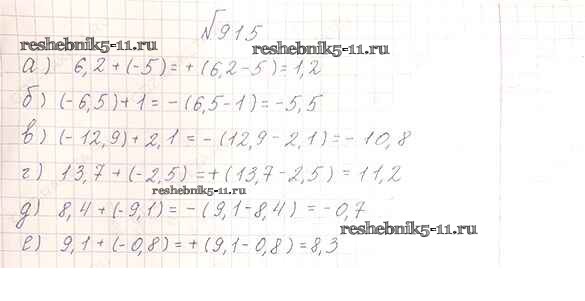 №915
reshebnik5-11.ru
reshebnik5-11.ru
а) 6,2+(-5)=+(6,2-5)=1,2
б) (-6,5)+1=-(6,5-1)=-5,5
в) (-12,9)+2,1=-(12,9-2,1)=-10,8
г) 13,7+(-2,5)=+(13,7-2,5)=11,2
reshebnik5-11.ru
д) 8,4+(-9,1)=-(9,1-8,4)=-0,7
reshebnik5-11.ru
е) 9,1+(-0,8)=+(9,1-0,8)=8,3